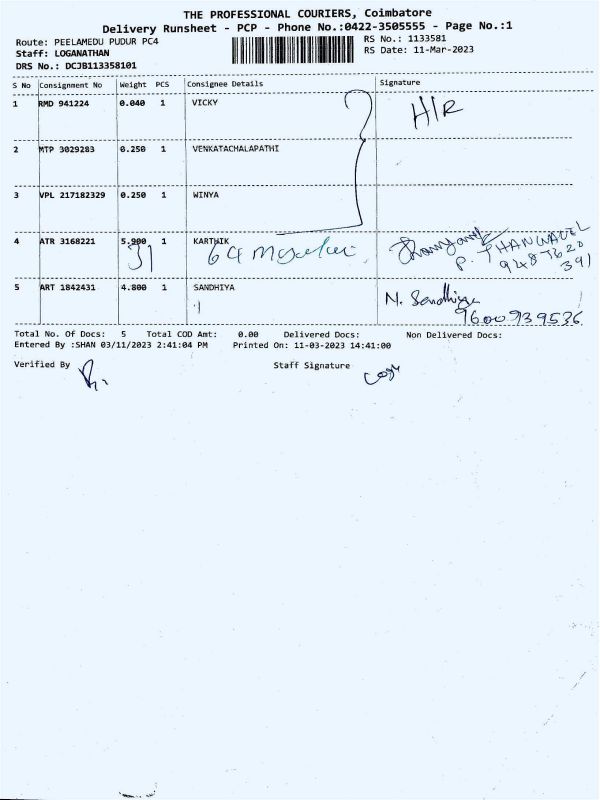 THE PROFESSIONAL COURIERS, Coimbatore
Delivery Runsheet - PCP - Phone No.:0422-3505555 - Page No.:1
Route: PEELAMEDU PUDUR PC4
RS No.: 1133581
Staff: LOGANATHAN
RS Date: 11-Mar-2023
DRS No.: DCJB113358101
S No Consignment No Weight PCS Consignee Details Signature
1 RMD 941224 0.040 1 VICKY H/R
2 MTP 3029283 0.250 1 VENKATACHALAPATHI
3 VPL 217182329 0.250 1 WINYA
4 ATR 3168221 5.900 1 KARTHIK
31 64
P. THANGAVEL
9487620
391
5 ART 1842431 4.800 1 SANDHIYA N. Sandhiya
9600939536
Total No. Of Docs: 5 Total COD Amt: 0.00 Delivered Docs: Non Delivered Docs:
Entered By :SHAN 03/11/2023 2:41:04 PM Printed On: 11-03-2023 14:41:00
Verified By Staff Signature